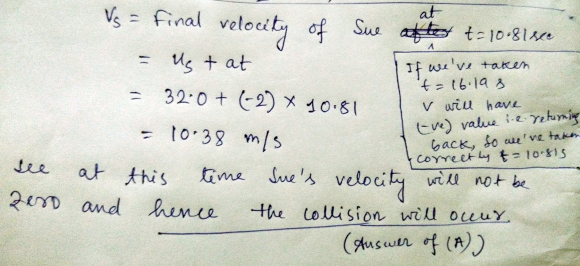 Vs = Final velocity of Sue at t = 10.81 sec
= us + at
= 32.0 + (-2) × 10.81
= 10.38 m/s
If we've taken
t = 16.19 s
v will have
(-ve) value i.e. returning
back, so we've taken
correctly t = 10.81s
See at this time Sue's velocity will not be
zero and hence the collision will occur.
(Answer of (A))